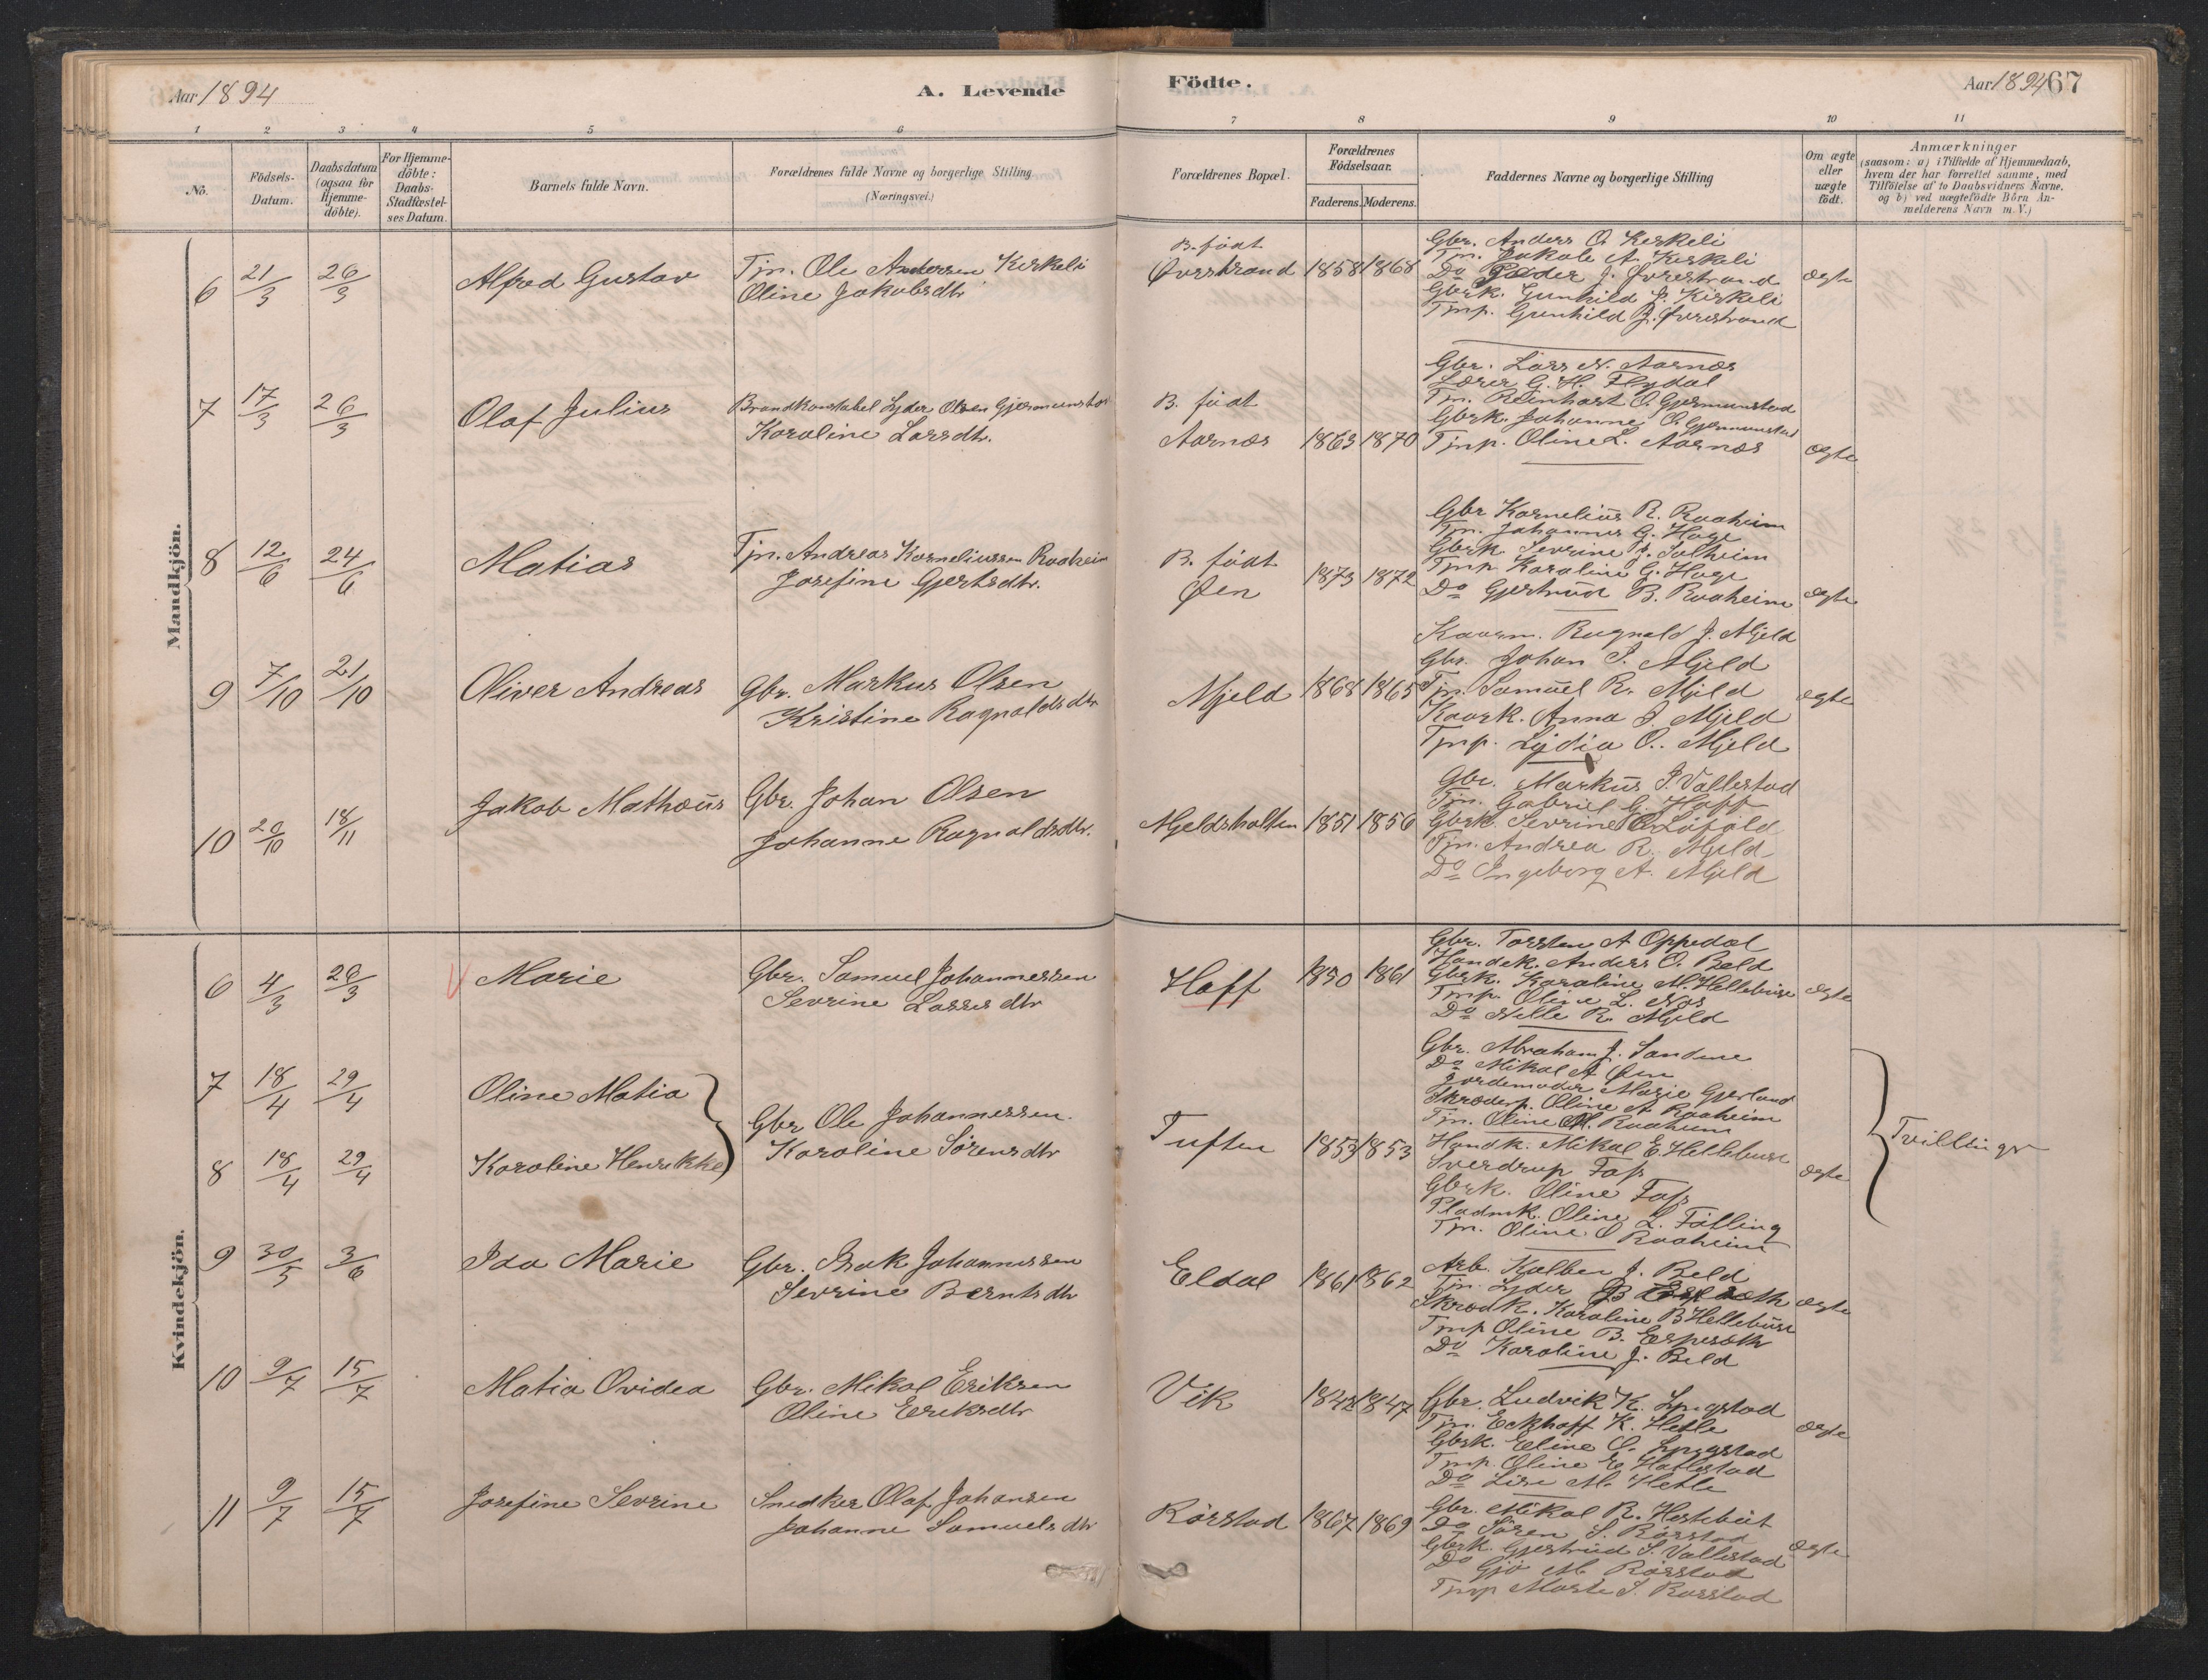 Aar 1894
A. Levende
Födte.
Aar 1894 67
1 2 3 4 5 6 7 8 9 10 11
No.
Födsels-
Datum.
Daabsdatum
(ogsaa for
Hjemme-
döbte).
For Hjemme-
döbte:
Daabs-
Stadfæstel-
ses Datum.
Barnets fulde Navn.
Forældrenes fulde Navne og borgerlige Stilling
(Næringsvei.)
Forældrenes Bopæl.
Forældrenes
Födselsaar.
Faderens. Moderens.
Faddernes Navne og borgerlige Stilling
Om ægte
eller
uægte
födt.
Anmærkninger
(saasom: a) i Tilfælde af Hjemmedaab,
hvem der har forrettet samme, med
Tilföielse af to Daabsvidners Navne,
og b) ved uægtefödte Börn An-
melderens Navn m.V.)
Mandkjön.
6 21/3 26/3 Alfred Gustav
Tjn. Ole Andersen Kirkeli
Oline Jakobsdtr
B. født
Øvrstrand 1858 1868
Gbr. Anders O. Kirkeli
Tjn. Jakob A. Kirkeli
Do Peder J. Øvrestrand
Gbrk. Gunhild J. Kirkeli
Tjnp. Gunhild J. Øvrestrand
ægte
7 17/3 26/3 Olaf Julius
Brandkonstabel Lyder Olsen Gjermunstad
Karoline Larsdtr.
B. født
Aarnæs 1863 1870
Gbr. Lars N. Aarnæs
Lærer G. H. Flydal
Tjn. Reinhart O. Gjermunstad
Gbrk. Johanne O. Gjermunstad
Tjnp. Oline L. Aarnæs
ægte
8 12/6 24/6 Matias
Tjn. Andreas Korneliussen Raaheim
Josefine Gjertsdtr.
B. født
Øen 1873 1872
Gbr Kornelius R. Raaheim
Tjn. Johannes G. Hage
Gbrk. Sevrine J. Solheim
Tjnp Karoline G. Hage
Do Gjertrud B. Raaheim
ægte
9 7/10 21/10 Oliver Andreas
Gbr. Markus Olsen
Kristine Ragnaldsdtr
Mjeld 1868 1865
Kaarm. Ragnald J. Mjeld
Gbr. Johan S. Mjeld
Tjn. Samuel R. Mjeld
Kaark. Anna S. Mjeld
Tjnp. Lydia O. Mjeld
ægte
10 20/10 18/11 Jakob Mathæus
Gbr. Johan Olsen
Johanne Ragnaldsdtr.
Mjeldsholten 1851 1856
Gbr. Markus J. Vallestad
Tjn. Gabriel G. Hoff
Gbrk. Sevrine
Tjn. Andrea R. Mjeld
Do Ingeborg A. Mjeld
Kvindekjön.
6 4/3 26/3 Marie
Gbr. Samuel Johannessen
Sevrine Lassesdtr
Hoff 1850 1861
Gbr. Torsten A Oppedal
Handek. Anders O. Beld
Gbrk. Karoline M. Hellebust
Tjnp. Oline L. Nes
Do Nille R. Mjeld
ægte
7 18/4 29/4 Oline Matia
8 18/4 29/4 Karoline Henrikke
Gbr Ole Johannessen.
Karoline Sørensdtr
Tuften 1853 1853
Gbr. Abraham J. Sandnes
Do Mikal A Øen
Jordemoder Marie Gjerland
Skræderp. Oline A Raaheim
Tjn. Oline M. Raaheim
Handk. Mikal E. Hellebust
Sverdrup Foss
Gbrk. Oline Foss
Pladmk. Oline L. Føtling
Tjn. Oline O Raaheim
ægte
Tvillinger
9 30/5 3/6 Ida Marie
Gbr. Isak Johannessen
Sevrine Berntsdtr
Eldal 1861 1862
Arb. Kolben J. Beld
Tjn. Lyder B
Skrædk. Karoline B Hellebust
Tjnp Oline B. Espesøth
Do Karoline J. Beld
ægte
10 9/7 15/7 Matia Ovidea
Gbr. Mikal Eriksen
Oline Eriksdtr
Vik 1842 1847
Gbr. Ludvik K. Lyngstad
Tjn. Eckhoff K. Hetle
Gbrk. Eline O. Lyngstad
Tjnp. Oline E. Hatlestad
Do Lise M. Hetle
ægte
11 9/7 15/7 Josefine Sevrine
Snedker Olaf Johansen
Johanne Samuelsdtr
Rørstad 1867 1869
Gbr. Mikal R. Hestebeit
Do Søren S. Rørstad
Gbrk. Gjertrud S. Vallestad
Do Gjø M. Rørstad
Tjnp Marte S. Rørstad
ægte